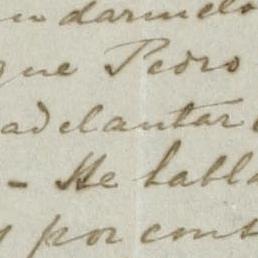 en darmelo
que Pedro
adelantar
- He habla
y por cons